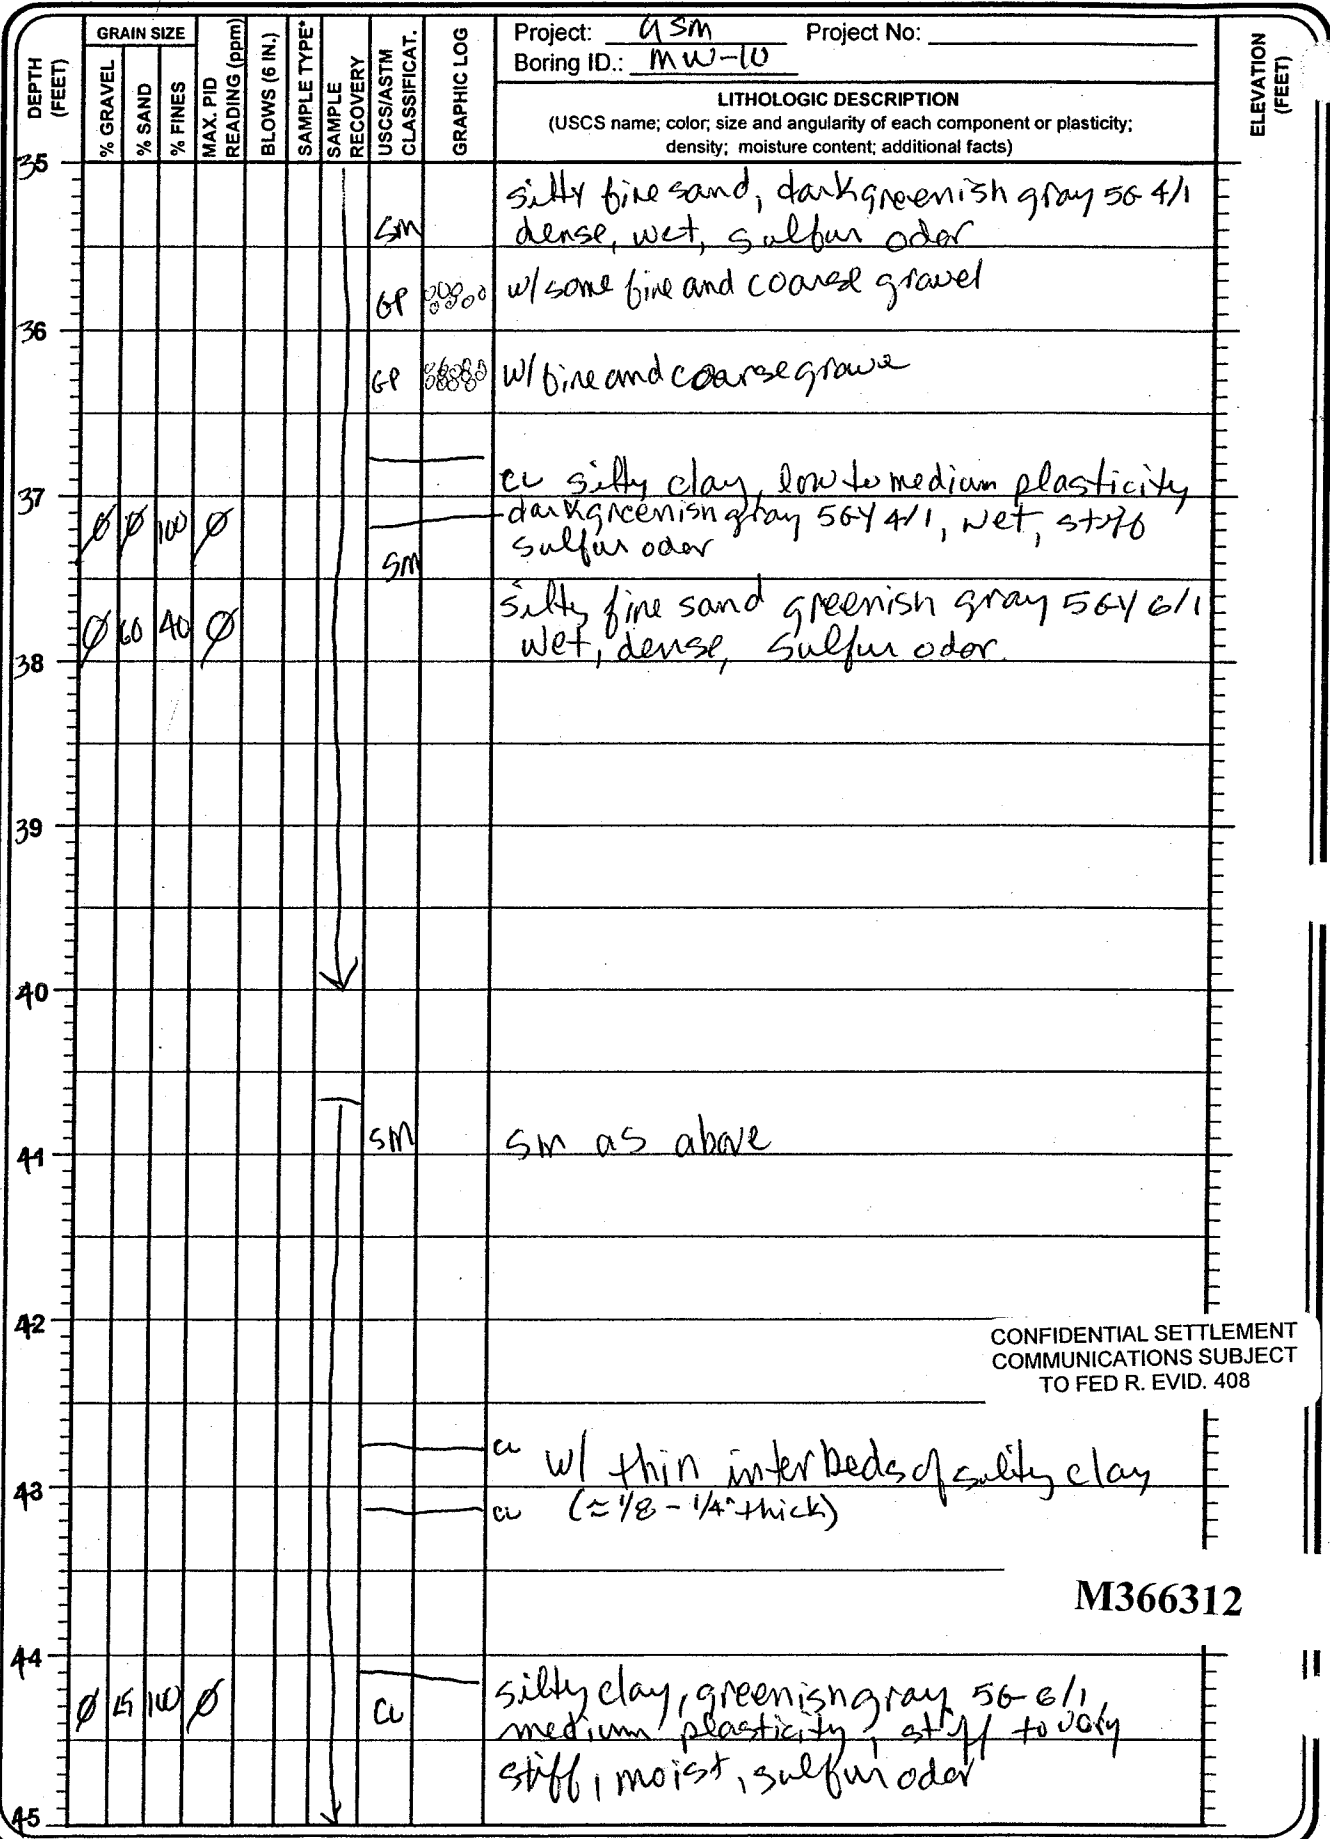 Project: GSM Project No:
Boring ID.: MW-10
DEPTH (FEET)
GRAIN SIZE
% GRAVEL
% SAND
% FINES
MAX. PID READING (ppm)
BLOWS (6 IN.)
SAMPLE TYPE*
SAMPLE RECOVERY
USCS/ASTM CLASSIFICAT.
GRAPHIC LOG
LITHOLOGIC DESCRIPTION
(USCS name; color; size and angularity of each component or plasticity;
density; moisture content; additional facts)
ELEVATION (FEET)
35
silty fine sand, dark greenish gray 5G 4/1
SM dense, wet, sulfur odor
GP w/ some fine and coarse gravel
36
GP w/ fine and coarse grave
CL silty clay, low to medium plasticity
37
Ø Ø 100 Ø dark greenish gray 5GY 4/1, wet, stiff
SM sulfur odor
silty fine sand greenish gray 5GY 6/1
Ø 60 40 Ø wet, dense, sulfur odor.
38
39
40
SM SM as above
41
42
CONFIDENTIAL SETTLEMENT
COMMUNICATIONS SUBJECT
TO FED R. EVID. 408
CL w/ thin interbeds of silty clay
43
CL (≈ 1/8 - 1/4" thick)
M366312
44
silty clay, greenish gray 5G 6/1,
Ø 100 Ø CL medium plasticity, stiff to very
stiff, moist, sulfur odor
45